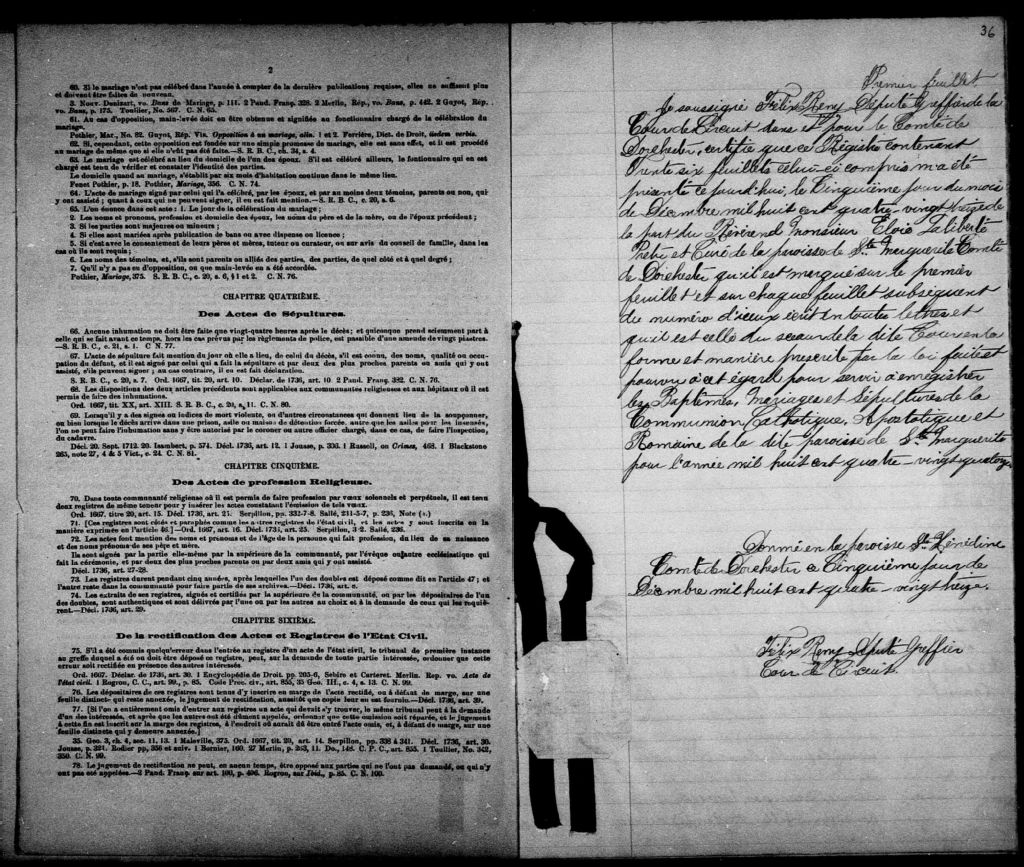 2
60. Si le mariage n'est pas célébré dans l'année à compter de la dernière publications requises, elles ne suffisent plus
et doivent être faites de nouveau.
3. Nouv. Denizart, vo. Bans de Mariage, p. 111. 2 Pand. Franç. 328. 2 Merlin, Rép., vo. Bans, p. 442. 2 Guyot, Rép.
vo. Bans, p. 175. Toullier, No. 567. C. N. 65.
61. Au cas d'opposition, main-levée doit en être obtenue et signifiée au fonctionnaire chargé de la célébration du
mariage.
Pothier, Mar., No. 82. Guyot, Rép. Vis. Opposition à un mariage, alin. 1 et 2. Ferrière, Dict. de Droit, iisdem verbis.
62. Si, cependant, cette opposition est fondée sur une simple promesse de mariage, elle est sans effet, et il est procédé
au mariage de même que si elle n'eût pas été faite.—S. R. B. C., ch. 34, s. 4.
63. Le mariage est célébré au lieu du domicile de l'un des époux. S'il est célébré ailleurs, le fontionnaire qui en est
chargé est tenu de vérifier et constater l'identité des parties.
Le domicile quant au mariage, s'établit par six mois d'habitation continue dans le même lieu.
Fenet Pothier, p. 18. Pothier, Mariage, 356. C. N. 74.
64. L'acte de mariage signé par celui qui l'a célébré, par les époux, et par au moins deux témoins, parents ou non, qui
y ont assisté; quant à ceux qui ne peuvent signer, il en est fait mention.—S. R. B. C., c. 20, s. 6.
65. L'on énonce dans cet acte : 1. Le jour de la célébration du mariage ;
2. Les noms et prénoms, profession et domicile des époux, les noms du père et de la mère, ou de l'époux précédent ;
3. Si les parties sont majeures ou mineurs ;
4. Si elles sont mariées après publication de bans ou avec dispense ou licence ;
5. Si c'est avec le consentement de leurs pères et mères, tuteur ou curateur, ou sur avis du conseil de famille, dans les
cas où ils sont requis ;
6. Les noms des témoins, et, s'ils sont parents ou alliés des parties, des parties, de quel côté et à quel degré ;
7. Qu'il n'y a pas eu d'opposition, ou que main-levée en a été accordée.
Pothier, Mariage, 375. S. R. B. C., c. 20, s. 6, § 1 et 2. C. N. 76.
CHAPITRE QUATRIÈME.
Des Actes de Sépultures.
66. Aucune inhumation ne doit être faite que vingt-quatre heures après le décès; et quiconque prend sciemment part à
celle qui se fait avant ce temps, hors les cas prévus par les règlements de police, est passible d'une amende de vingt piastres.
—S. R. B. C., c. 21, s. 1. C N. 77.
67. L'acte de sépulture fait mention du jour où elle a lieu, de celui du décès, s'il est connu, des noms, qualité ou occu-
pation du défunt, et il est signé par celui qui a fait la sépulture et par deux des plus proches parents ou amis qui y ont
assisté, s'ils peuvent signer ; au cas contraire, il en est fait déclaration.
S. R. B. C., c. 20, s. 7. Ord. 1667, tit. 20, art. 10. Déclar. de 1736, art. 10. 2 Pand. Franç. 382. C. N. 76.
68. Les dispositions des deux articles précédents sont applicables aux communautés religieuses et aux hôpitaux où il est
permis de faire des inhumations.
Ord. 1667, tit. XX, art. XIII. S. R. B. C., c. 20, s, 11. C. N. 80.
69. Lorsqu'il y a des signes ou indices de mort violente, ou d'autres circonstances qui donnent lieu de la soupçonner,
ou bien lorsque le décès arrive dans une prison, asile ou maison de détention forcée, autre que les asiles pour les insensés,
l'on ne peut faire l'inhumation sans y être autorisé par le coroner ou autre officier chargé, dans ce cas, de faire l'inspection,
du cadavre.
Décl. 20. Sept. 1712. 20. Isambert, p. 574. Décl. 1736, art. 12. 1 Jousse, p. 300. 1 Russell, on Crimes, 468. 1 Blackstone
265, note 27, 4 & 5 Vict., c. 24. C N. 81.
CHAPITRE CINQUIÈME.
Des Actes de profession Religieuse.
70. Dans toute communauté religieuse où il est permis de faire profession par vœux solennels et perpétuels, il est tenu
deux registres de même teneur pour y insérer les actes constatant l'émission de tels vœux.
Ord. 1667, titre 20, art. 15. Décl. 1736, art. 25. Serpillon, pp. 332-7-8. Sallé, 211-5-7, p. 236, Note (a.)
71. [Ces registres sont côtés et paraphés comme les autres registres de l'état civil, et les actes y sont inscrits en la
manière exprimée en l'article 46.]—Ord. 1667, art. 16. Décl. 1736, art. 25. Serpillon, 3-2. Sallé, 236.
72. Les actes font mention des noms et prénoms et de l'âge de la personne qui fait profession, du lieu de sa naissance
et des noms prénoms de ses père et mère.
Ils sont signés par la partie elle-même par la supérieure de la communauté, par l'évêque ou autre ecclésiatique qui
fait la cérémonie, et par deux des plus proches parents ou par deux amis qui y ont assisté.
Décl. 1736, art. 27-28.
73. Les registres durent pendant cinq années, après lesquelles l'un des doubles est déposé comme dit en l'article 47 ; et
l'autre reste dans la communauté pour faire partie de ses archives.—Décl. 1736, art. 8.
74. Les extraits de ses registres, signés et certifiés par la supérieure de la communauté, ou par les dépositaires de l'un
des doubles, sont authentiques et sont délivrés par l'une ou par les autres au choix et à la demande de ceux qui les requiè-
rent.—Décl. 1736, art. 29.
CHAPITRE SIXIÈME.
De la rectification des Actes et Registres de l'Etat Civil.
75. S'il a été commis quelqu'erreur dans l'entrée au registre d'un acte de l'état civil, le tribunal de première instance
au greffe duquel a été ou doit être déposé ce registre, peut, sur la demande de toute partie intéressée, ordonner que cette
erreur soit rectifiée en présence des autres intéressés
Ord. 1667. Déclar. de 1736, art. 30. 1 Encyclopédie de Droit. pp. 205-6, Sebire et Carteret. Merlin. Rep. vo. Acte de
l'état civil. 1 Rogron, C. C., art. 99., p. 85. Code Proc. civ., art. 855, 35 Geo. III., c. 4, s. 13. C. N. 99.
76. Les dépositaires de ces registres sont tenus d'y inscrire en marge de l'acte rectifié, ou à défaut de marge, sur une
feuille distincte qui reste annexée, le jugement de rectification, aussitôt que copie leur en est fournie.—Décl. 1736, art. 39.
77. [Si l'on a entièrement omis d'entrer aux registres un acte qui devait s'y trouver, le même tribunal peut à la demande
d'un des intéressés, et après que les autres ont été dûment appelés, ordonner que cette omission soit réparée, et le jugement
à cette fin est inscrit sur la marge des registres, à l'endroit où aurait dû être entré l'acte omis, et, à défaut de marge, sur une
feuille distincte qui y demeure annexée.]
35. Geo. 3, ch. 4, sec. 11, 13. 1 Maleville, 375. Ord. 1667, tit. 20, art. 14. Serpillon, pp. 338 à 341. Décl. 1736, art. 30.
Jousse, p. 321. Rodier pp, 356 et suiv. 1 Bornier, 160. 27 Merlin, p. 253, 11. Do., 148. C. P. C., art. 855. 1 Toullier, No. 342,
350. C. N. 99.
78. Le jugement de rectification ne peut, en aucun temps, être opposé aux parties qui ne l'ont pas demandé, ou qui n'y
ont pas été appelées.—2 Pand. Franç. sur art. 100, p. 496. Rogron, sur Ibid., p. 85. C. N. 100.
36
Premier feuillet.
Je soussigné Félix Remy Député Greffier de la
Cour de Circuit dans et pour le Comté de
Dorchester, certifie que ce Registre contenant
Trente six feuillets celui-ci compris m'a été
présenté ce jourd'hui, le Cinquième jour du mois
de Décembre mil huit cent quatre-vingt treize de
la part du Révérend Monsieur Eloie Laliberté
Prêtre et Curé de la paroisse de Ste Marguerite Comté
de Dorchester qu'il est marqué sur le premier
feuillet et sur chaque feuillet subséquent
du numéro d'iceux écrit en toutes lettres et
qu'il est celle du sceau de la dite Cour en la
forme et manière prescrite par la loi fait et
pourvu à cet égard pour servir à enregistrer
les Baptêmes, Mariages et Sépultures de la
Communion Catholique, Apostolique et
Romaine de la dite paroisse de Ste Marguerite
pour l'année mil huit cent quatre-vingt quatorze
Donné en la paroisse Ste Hénédine
Comté de Dorchester ce Cinquième jour de
Décembre mil huit cent quatre-vingt treize.
Félix Remy Député Greffier
Cour de Circuit.